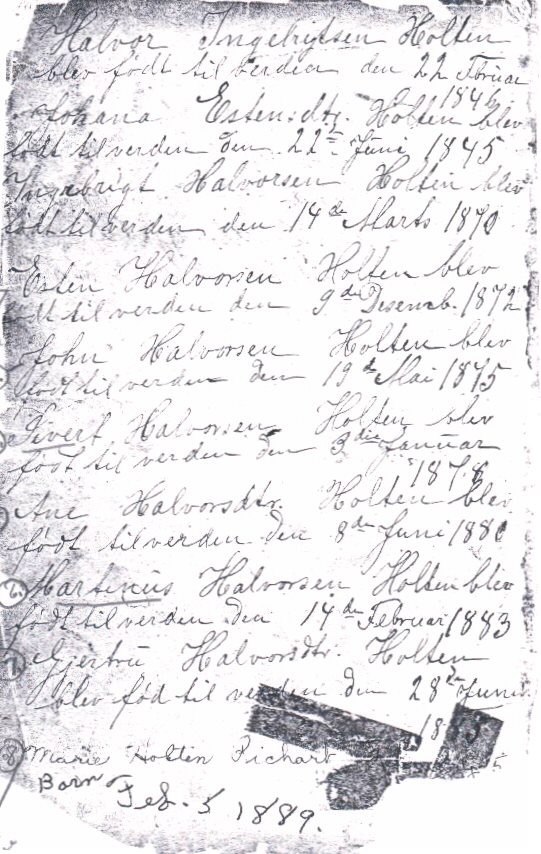 Halvor Ingebrigtsen Holten
blev födt til verden den 22 Februar
1846
Johana Estensdtr. Holten blev
födt til verden den 22de Juni 1845
Ingebrigt Halvorsen Holten blev
födt til verden den 14de Marts 1870
Esten Halvorsen Holten blev
födt til verden den 9de Desemb. 1872
John Halvorsen Holten blev
födt til verden den 19de Mai 1875
Sivert Halvorsen Holten blev
födt til verden den 3die Januar
1878
Ane Halvorsdtr. Holten blev
födt til verden den 8de Juni 1880
Martinus Halvorsen Holten blev
födt til verden den 14de Februar 1883
7 Gjertru Halvorsdtr. Holten
blev föd til verden den 28de Juni
18
8 Marie Holten Pichart
Born
Feb. 5 1889.